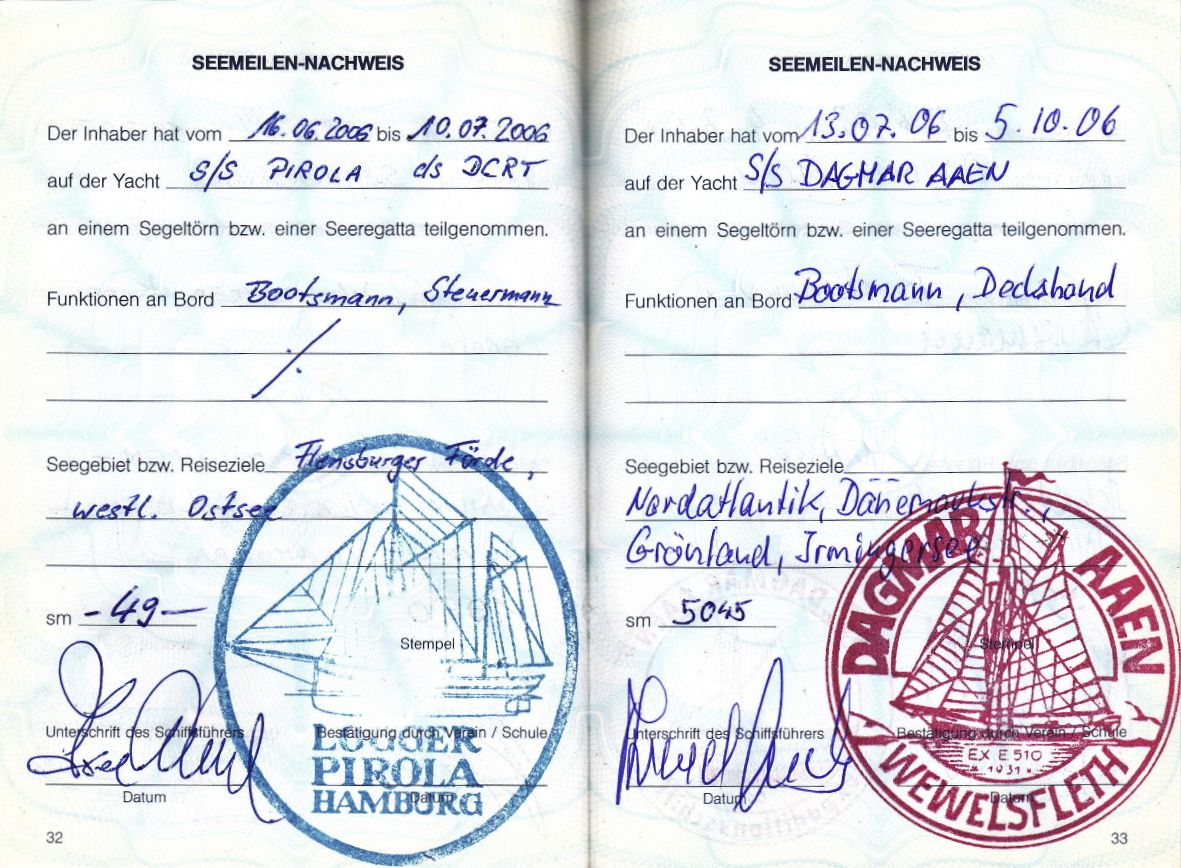 SEEMEILEN-NACHWEIS
Der Inhaber hat vom 16.06.2006 bis 10.07.2006
auf der Yacht S/S PIROLA ds DCRT
an einem Segeltörn bzw. einer Seeregatta teilgenommen.
Funktionen an Bord Bootsmann, Steuermann
Seegebiet bzw. Reiseziele Flensburger Förde,
westl. Ostsee
sm - 49 -
Stempel
Unterschrift des Schiffsführers Bestätigung durch Verein / Schule
LOGGER
PIROLA
HAMBURG
Datum Datum
32
SEEMEILEN-NACHWEIS
Der Inhaber hat vom 13.07.06 bis 5.10.06
auf der Yacht S/S DAGMAR AAEN
an einem Segeltörn bzw. einer Seeregatta teilgenommen.
Funktionen an Bord Bootsmann, Deckshand
Seegebiet bzw. Reiseziele
Nordatlantik, Dänemarkstr.,
Grönland, Irmingersee
sm 5045
Stempel
DAGMAR AAEN
Unterschrift des Schiffsführers Bestätigung durch Verein / Schule
EX E 510
* 1931 *
WEWELSFLETH
Datum Datum
33